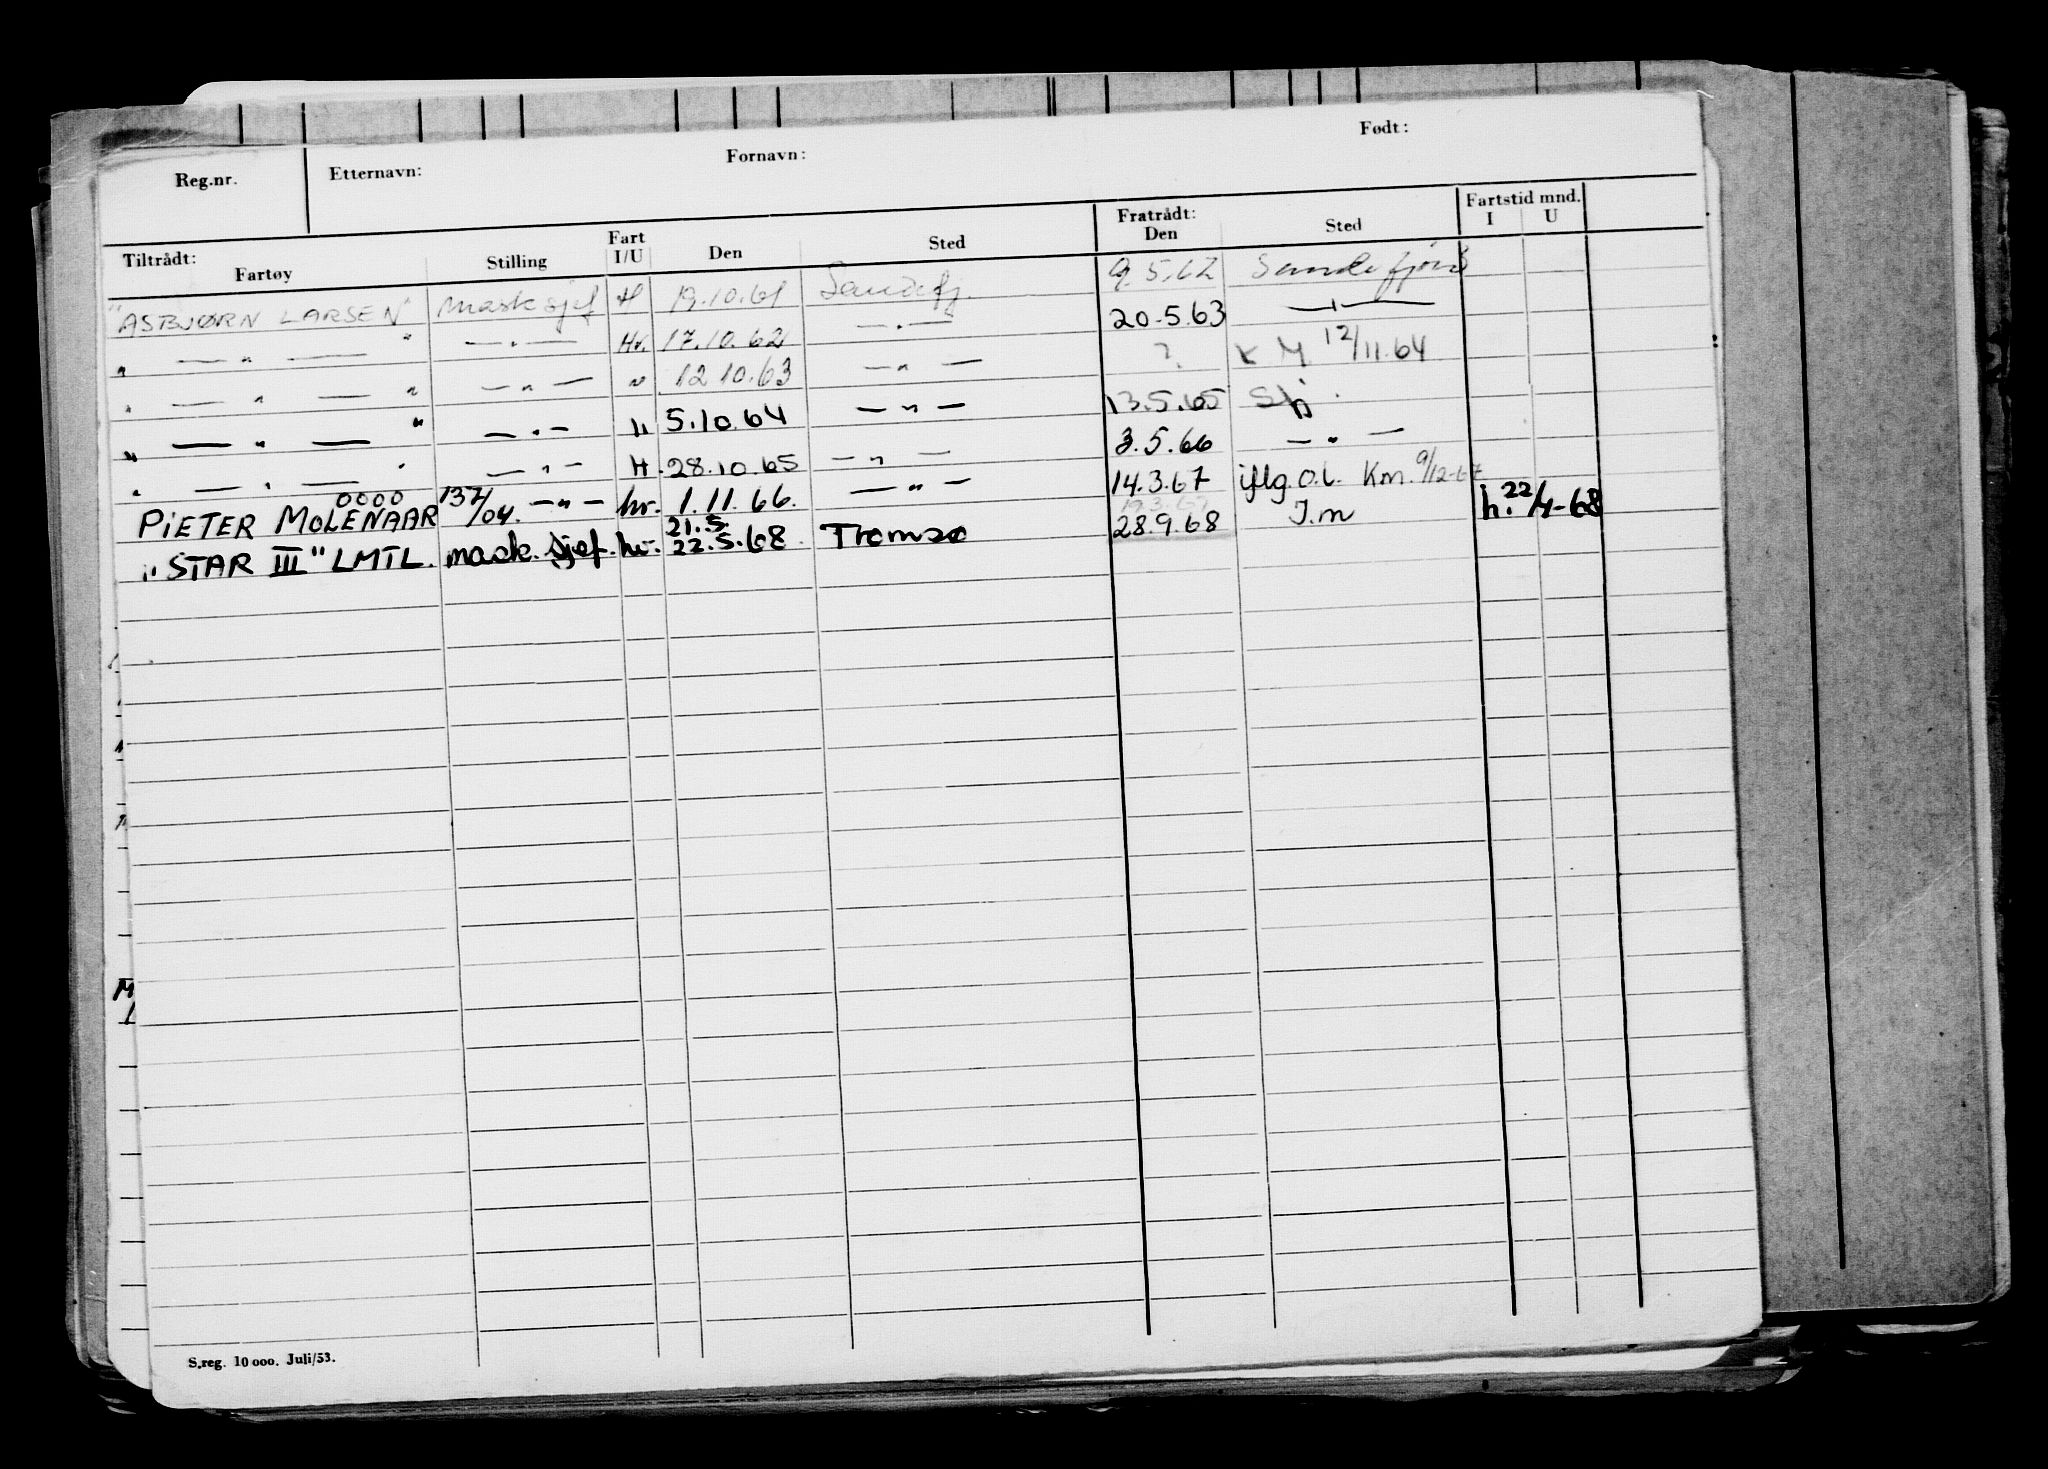 Reg.nr. Etternavn: Fornavn: Født:
Tiltrådt: Fartøy Stilling Fart I/U Den Sted Fratrådt: Den Sted Fartstid mnd. I U
"ASBJØRN LARSEN" mask sjef H 19.10.61 Sandefj. 9.5.62 Sandefjord
" — " — " — " — Hv. 17.10.62 — " — 20.5.63 — " —
" — " — " — " — " 12 10.63 — " — ? K M 12/11.64
" — " — " — " — " 5.10.64 — " — 13.5.65 Sfj.
" — " — " — " — H. 28.10.65 — " — 3.5.66 — " —
PIETER MOLENAAR 0000 137/04. — " — hv. 1.11.66. — " — 14.3.67 iflg. O.L. Km. 9/12-67
"STAR III" LMTL. mask. sjef. hv. 21.5. 22.5.68. Tromsø 28.9.68 I.m h. 22/4-68
S.reg. 10 000. Juli/53.